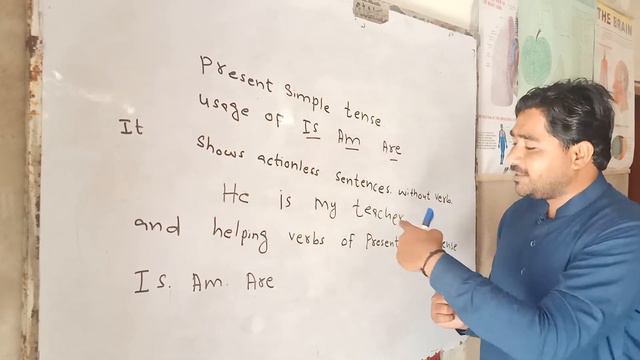 Present Simple tense
usage of Is Am Are
It shows actionless sentences. without verb.
He is my teacher
and helping verbs of Present ense
Is. Am. Are
THE BRAIN